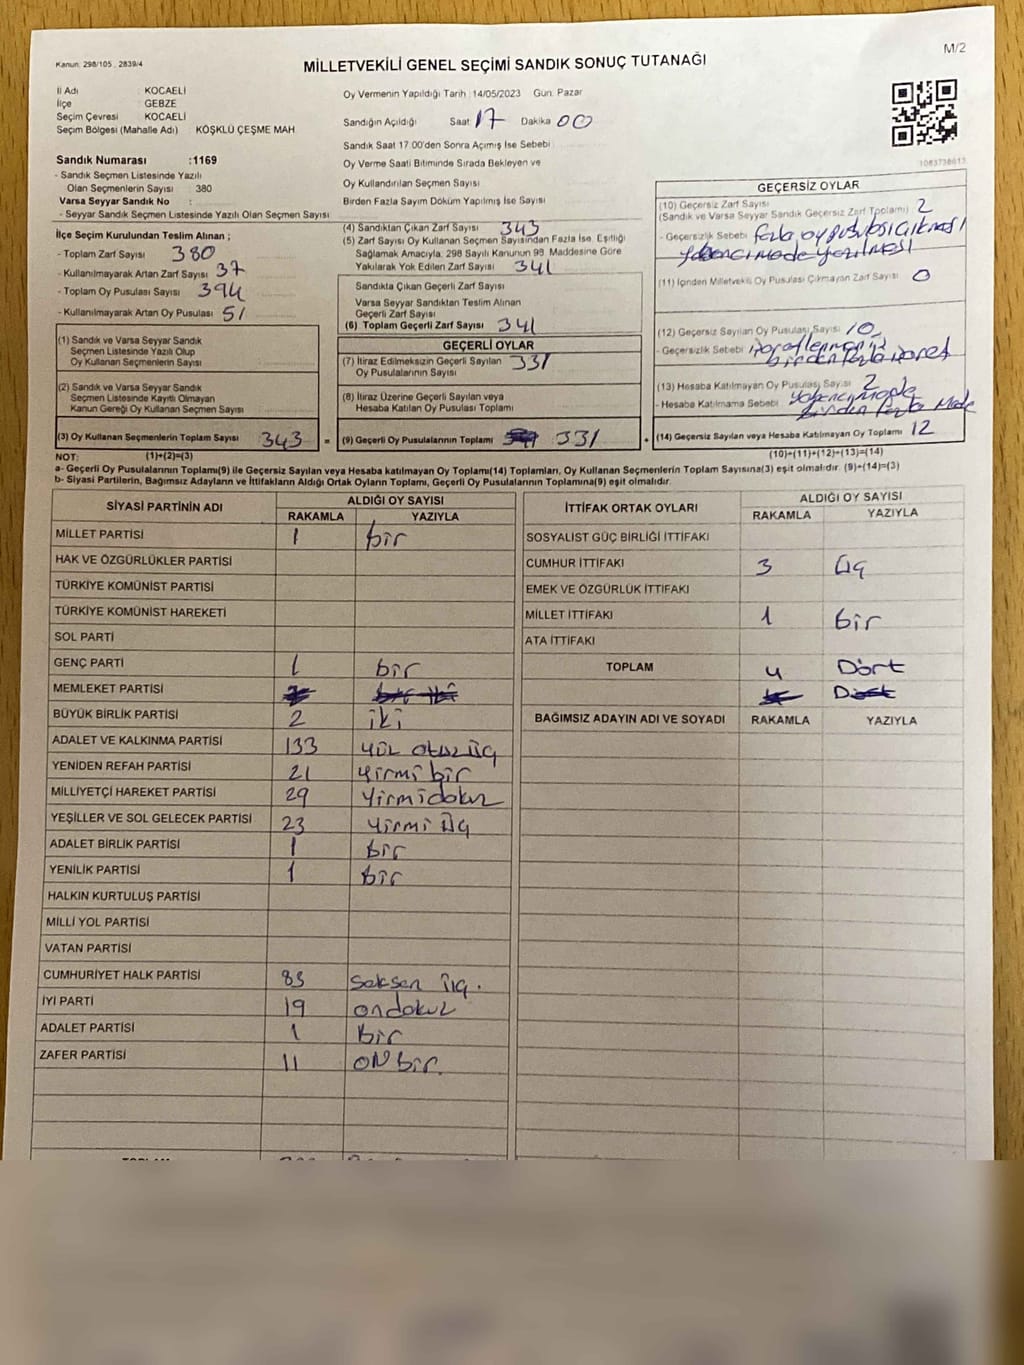 M/2
Kanun: 298/105, 2839/4
MİLLETVEKİLİ GENEL SEÇİMİ SANDIK SONUÇ TUTANAĞI
İl Adı : KOCAELİ
İlçe : GEBZE
Seçim Çevresi : KOCAELİ
Seçim Bölgesi (Mahalle Adı) : KÖŞKLÜ ÇEŞME MAH
Sandık Numarası :1169
- Sandık Seçmen Listesinde Yazılı
Olan Seçmenlerin Sayısı : 380
Varsa Seyyar Sandık No :
- Seyyar Sandık Seçmen Listesinde Yazılı Olan Seçmen Sayısı
Oy Vermenin Yapıldığı Tarih : 14/05/2023 Gün: Pazar
Sandığın Açıldığı Saat 17 Dakika 00
Sandık Saat 17.00'den Sonra Açımış İse Sebebi
Oy Verme Saati Bitiminde Sırada Bekleyen ve
Oy Kullandırılan Seçmen Sayısı
Birden Fazla Sayım Döküm Yapılmış İse Sayısı
1083738613
İlçe Seçim Kurulundan Teslim Alınan ;
- Toplam Zarf Sayısı : 380
- Kullanılmayarak Artan Zarf Sayısı : 37
- Toplam Oy Pusulası Sayısı : 394
- Kullanılmayarak Artan Oy Pusulası : 51
(1) Sandık ve Varsa Seyyar Sandık
Seçmen Listesinde Yazılı Olup
Oy Kullanan Seçmenlerin Sayısı
(2) Sandık ve Varsa Seyyar Sandık
Seçmen Listesinde Kayıtlı Olmayan
Kanun Gereği Oy Kullanan Seçmen Sayısı
(3) Oy Kullanan Seçmenlerin Toplam Sayısı 343 =
(4) Sandıktan Çıkan Zarf Sayısı 343
(5) Zarf Sayısı Oy Kullanan Seçmen Sayısından Fazla İse, Eşitliği
Sağlamak Amacıyla; 298 Sayılı Kanunun 99. Maddesine Göre
Yakılarak Yok Edilen Zarf Sayısı : 341
Sandıkta Çıkan Geçerli Zarf Sayısı
Varsa Seyyar Sandıktan Teslim Alınan
Geçerli Zarf Sayısı
(6) Toplam Geçerli Zarf Sayısı : 341
GEÇERLİ OYLAR
(7) İtiraz Edilmeksizin Geçerli Sayılan 331
Oy Pusulalarının Sayısı
(8) İtiraz Üzerine Geçerli Sayılan veya
Hesaba Katılan Oy Pusulası Toplamı
(9) Geçerli Oy Pusulalarının Toplamı 331 +
GEÇERSİZ OYLAR
(10) Geçersiz Zarf Sayısı 2
(Sandık ve Varsa Seyyar Sandık Geçersiz Zarf Toplamı)
- Geçersizlik Sebebi fazla oy pusulası çıkması
yabancı madde yazılması
(11) İçinden Milletvekili Oy Pusulası Çıkmayan Zarf Sayısı 0
(12) Geçersiz Sayılan Oy Pusulası Sayısı 10
- Geçersizlik Sebebi
birden fazla işaret
(13) Hesaba Katılmayan Oy Pusulası Sayısı 2
- Hesaba Katılmama Sebebi yabancı madde
birden fazla Made
(14) Geçersiz Sayılan veya Hesaba Katılmayan Oy Toplamı 12
NOT: (1)+(2)=(3) (10)+(11)+(12)+(13)=(14)
a- Geçerli Oy Pusulalarının Toplamı(9) ile Geçersiz Sayılan veya Hesaba katılmayan Oy Toplamı(14) Toplamları, Oy Kullanan Seçmenlerin Toplam Sayısına(3) eşit olmalıdır. (9)+(14)=(3)
b- Siyasi Partilerin, Bağımsız Adayların ve İttifakların Aldığı Oyların Toplamı, Geçerli Oy Pusulalarının Toplamına(9) eşit olmalıdır.
SİYASİ PARTİNİN ADI ALDIĞI OY SAYISI
RAKAMLA YAZIYLA
MİLLET PARTİSİ 1 bir
HAK VE ÖZGÜRLÜKLER PARTİSİ
TÜRKİYE KOMÜNİST PARTİSİ
TÜRKİYE KOMÜNİST HAREKETİ
SOL PARTİ
GENÇ PARTİ 1 bir
MEMLEKET PARTİSİ
BÜYÜK BİRLİK PARTİSİ 2 iki
ADALET VE KALKINMA PARTİSİ 133 yüz otuz üç
YENİDEN REFAH PARTİSİ 21 yirmi bir
MİLLİYETÇİ HAREKET PARTİSİ 29 Yirmidokuz
YEŞİLLER VE SOL GELECEK PARTİSİ 23 yirmi üç
ADALET BİRLİK PARTİSİ 1 bir
YENİLİK PARTİSİ 1 bir
HALKIN KURTULUŞ PARTİSİ
MİLLİ YOL PARTİSİ
VATAN PARTİSİ
CUMHURİYET HALK PARTİSİ 83 seksen üç.
İYİ PARTİ 19 ondokuz
ADALET PARTİSİ 1 Bir
ZAFER PARTİSİ 11 ON bir.
İTTİFAK ORTAK OYLARI ALDIĞI OY SAYISI
RAKAMLA YAZIYLA
SOSYALİST GÜÇ BİRLİĞİ İTTİFAKI
CUMHUR İTTİFAKI 3 Üç
EMEK VE ÖZGÜRLÜK İTTİFAKI
MİLLET İTTİFAKI 1 bir
ATA İTTİFAKI
TOPLAM 4 Dört
BAĞIMSIZ ADAYIN ADI VE SOYADI RAKAMLA YAZIYLA